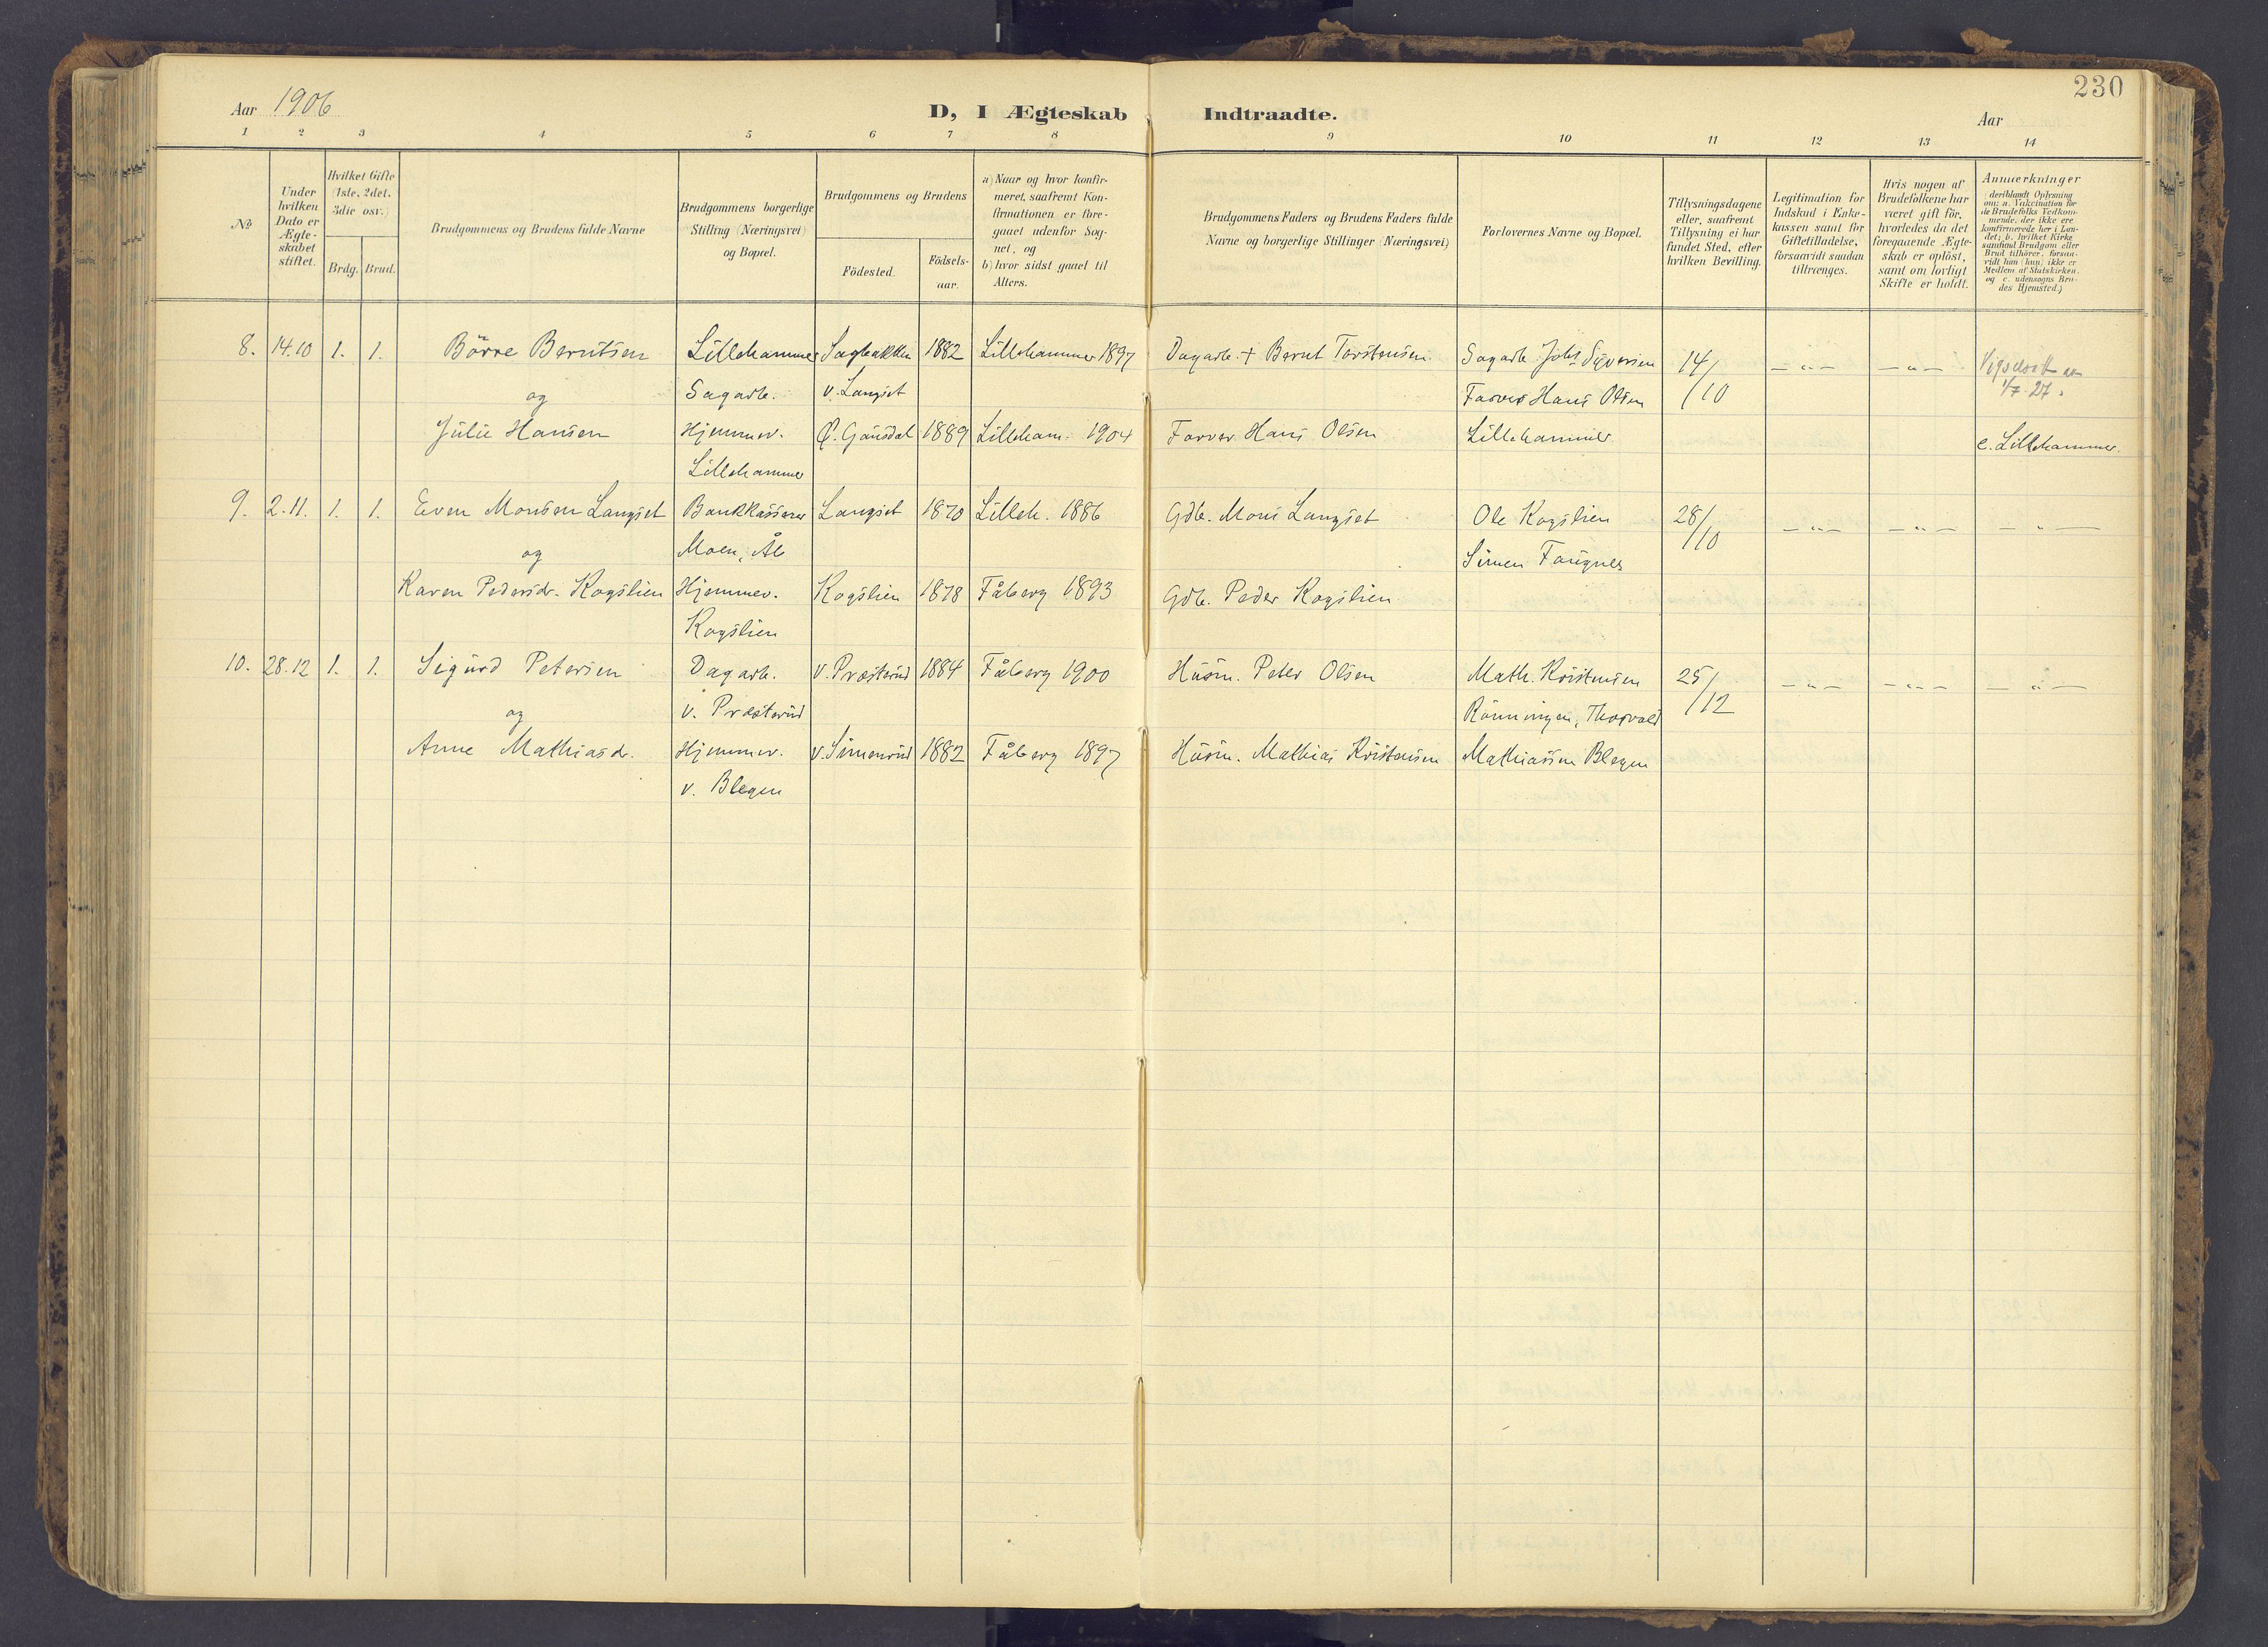 230
Aar 1906
D, I Ægteskab Indtraadte.
Aar
1 2 3 4 5 6 7 8 9 10 11 12 13 14
№
Under hvilken Dato er Ægte- skabet stiftet.
Hvilket Gifte (1ste, 2det, 3die osv.)
Brdg. Brud.
Brudgommens og Brudens fulde Navne
Brudgommens borgerlige Stilling (Næringsvei) og Bopæl.
Brudgommens og Brudens
Födested.
Födsels- aar.
a) Naar og hvor konfir- meret, saafremt Kon- firmationen er fore- gaaet udenfor Sog- net, og
b) hvor sidst gaael til Alters.
Brudgommens Faders og Brudens Faders fulde Navne og borgerlige Stillinger (Næringsvei)
Forlovernes Navne og Bopæl.
Tillysningsdagene eller, saafremt Tillysning ei har fundet Sted, efter hvilken Bevilling.
Legitimation for Indskud i Enke- kassen samt for Giftetilladelse, forsaavidt saadan tiltrænges.
Hvis nogen af Brudefolkene har været gift för, hvorledes da det foregaaende Ægte- skab er oplöst, samt om lovligt Skifte er holdt.
Anmærkninger (deriblandt Oplysning om: a. Vakcination for de Brudefolks Vedkom- mende, der ikke ere konfirmerede her i Lan- det; b. hvilket Kirke samfund Brudgom eller Brud tilhörer, forsaa- vidt han (hun) ikke er Medlem af Statskirken, og c. udensogns Bru- des Hjemsted.)
8. 14.10 1. 1. Börre Berntsen Lillehammer Sagbakken 1882 Lillehammer 1897 Dagarb. + Bernt Torstensen Sagarb. Johs Syversen 14/10 - " - - " -
1/7 27.
og Sagarb. v. Langset Farver Hans Olsen
Julie Hansen Hjemmev. Ö. Gausdal 1889 Lilleham. 1904 Farver Hans Olsen Lillehammer c. Lillehammer.
Lillehammer
9. 2.11. 1. 1. Even Monsen Langset Bankkasserer Langset 1870 Lilleh. 1886 Gdb. Mons Langset Ole Kogslien 28/10 - " - - " - - " -
og Moen, Ål Simen Faugner
Karen Pedersdr. Kogslien Hjemmev. Kogslien 1878 Fåberg 1893 Gdb. Peder Kogslien
Kogslien
10. 28.12 1. 1. Sigurd Petersen Dagarb. v. Præsterud 1884 Fåberg 1900 Husm. Peter Olsen Math. Kristensen 25/12 - " - - " - - " -
og v. Præsterud Rönningen, Thorvald
Anne Mathiasd. Hjemmev. v. Simenrud 1882 Fåberg 1897 Husm. Mathias Kristensen Mathiassen Blegen
v. Blegen